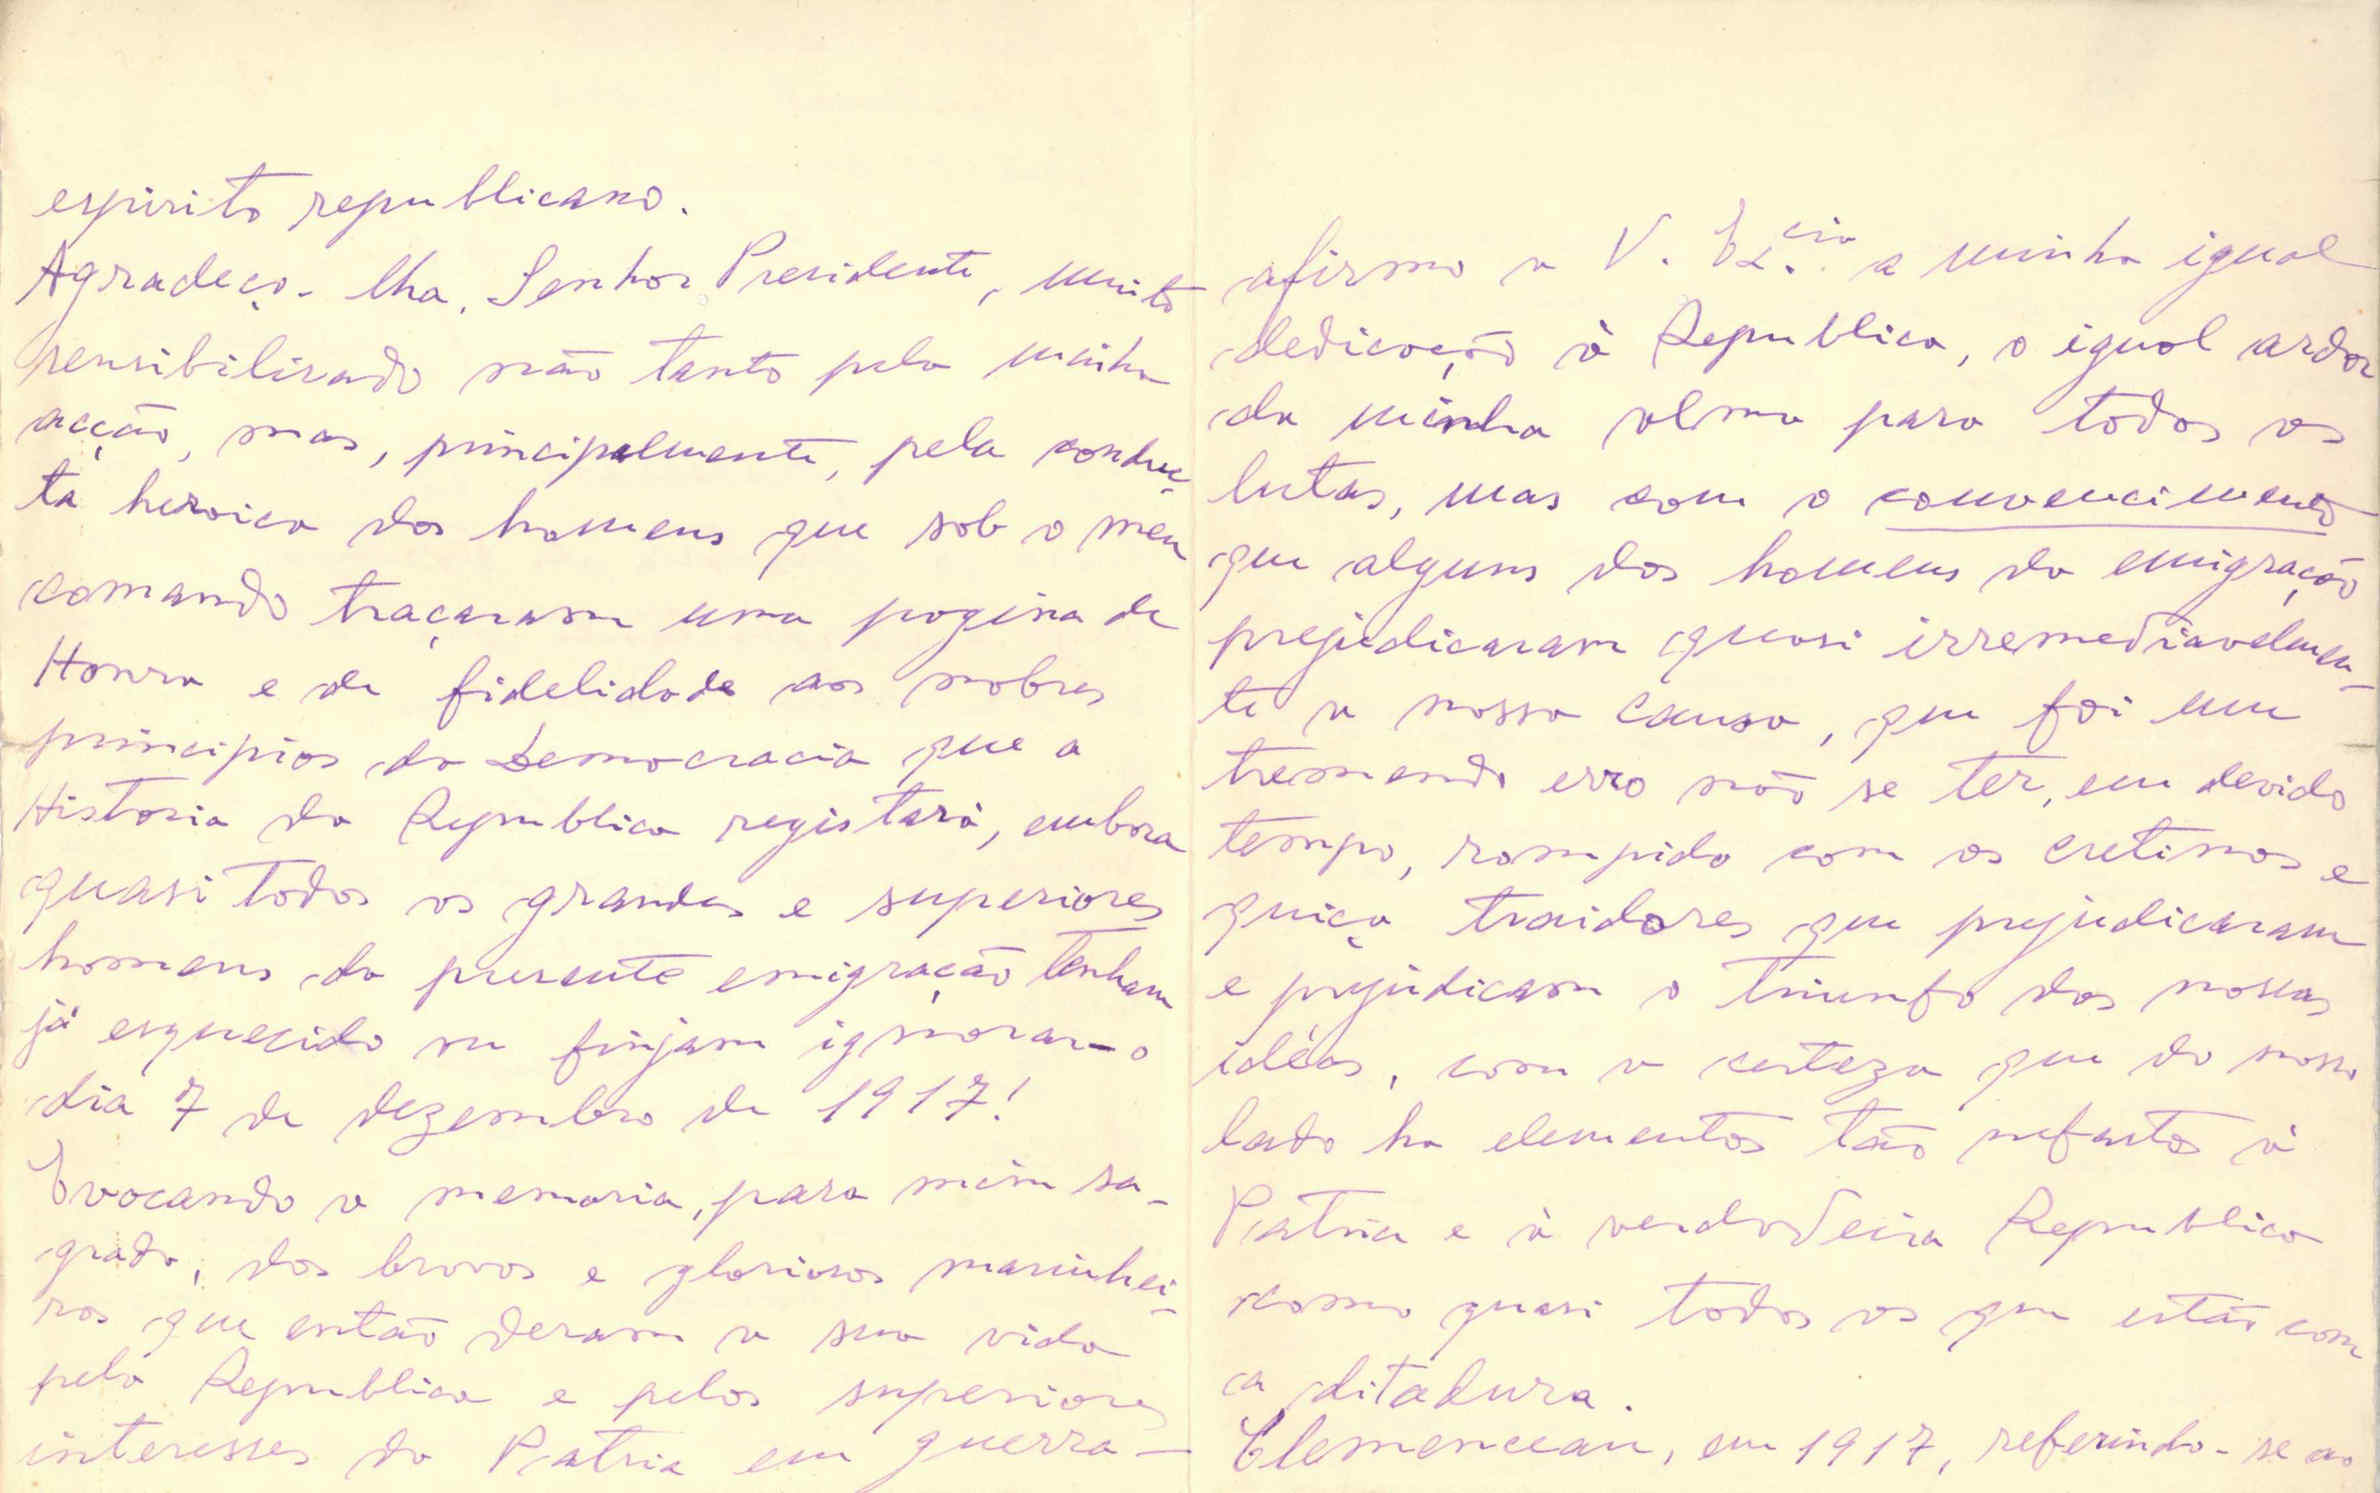 espirito republicano.
Agradeço-lha, Senhor Presidente, muito
sensibilisado não tanto pela minha
acção, mas, principalmente, pela conduc-
ta heroica dos homens que sob o meu
comando traçaram uma pagina de
Honra e de fidelidade aos nobres
principios da Democracia que a
Historia da Republica registará, embora
quasi todos os grandes e superiores
homens da presente emigração tenham
já esquecido ou finjam ignorar-o
dia 7 de dezembro de 1917!
Evocando a memoria, para mim sa-
grada, dos bravos e gloriosos marinhei-
ros que então deram a sua vida
pela Republica e pelos superiores
interesses da Patria em guerra-
afirmo a V. Ex.cia a minha igual
dedicação à Republica, o igual ardor
da minha alma para todas as
lutas, mas com o convencimento
que alguns dos homens da emigração
prejudicaram quasi irremediavelmen-
te a nossa causa, que foi um
tremendo erro não se ter, em devido
tempo, rompido com os cretinos e
quiça traidores que prejudicaram
e prejudicam o triunfo das nossas
idéas, com a certeza que do nosso
lado ha elementos tão nefastos à
Patria e à verdadeira Republica
como quasi todos os que estão com
a ditadura.
Clemenceau, em 1917, referindo-se ao